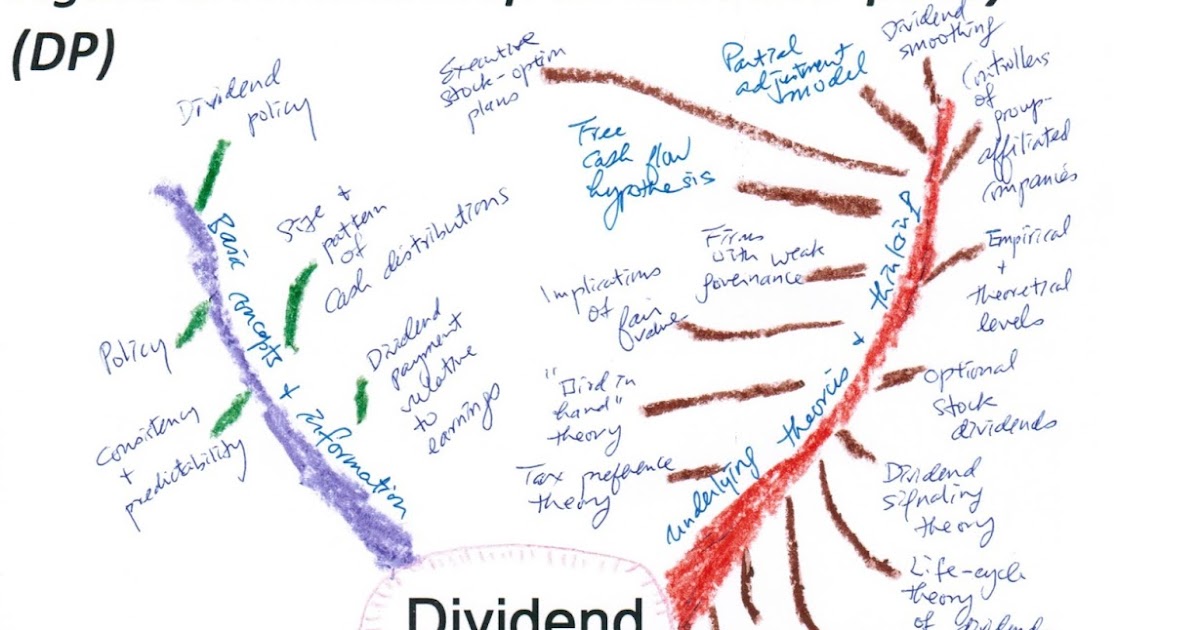 (DP)
Dividend
policy
Executive
stock-option
plans
Partial
adjustment
model
Dividend
smoothing
Controllers
of
group-
affiliated
companies
Free
cash flow
hypothesis
Size +
pattern
of
cash distributions
Basic concepts + information
Firms
with weak
governance
Empirical
+
theoretical
levels
Implications
of
fair
value
Policy
Dividend
payment
relative
to
earnings
"Bird in
hand"
theory
optional
stock
dividends
consistency
+
predictability
Tax preference
theory
underlying theories + thinking
Dividend
signaling
theory
Life-cycle
theory
of Dividend
Dividend